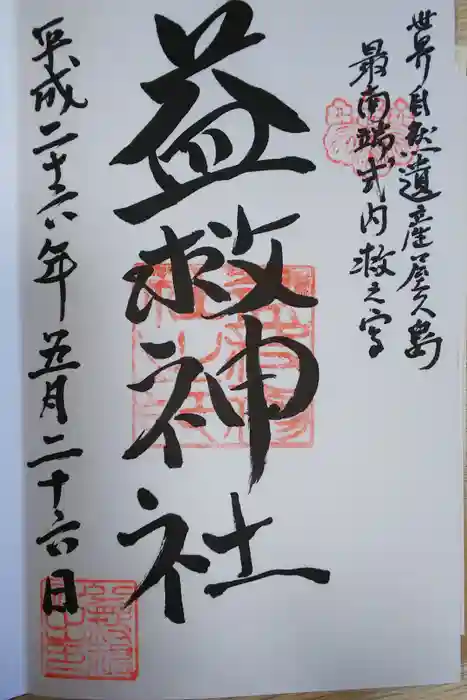 世界自然遺産屋久島
最南端式内救之宮
益救神社
平成二十六年五月二十六日